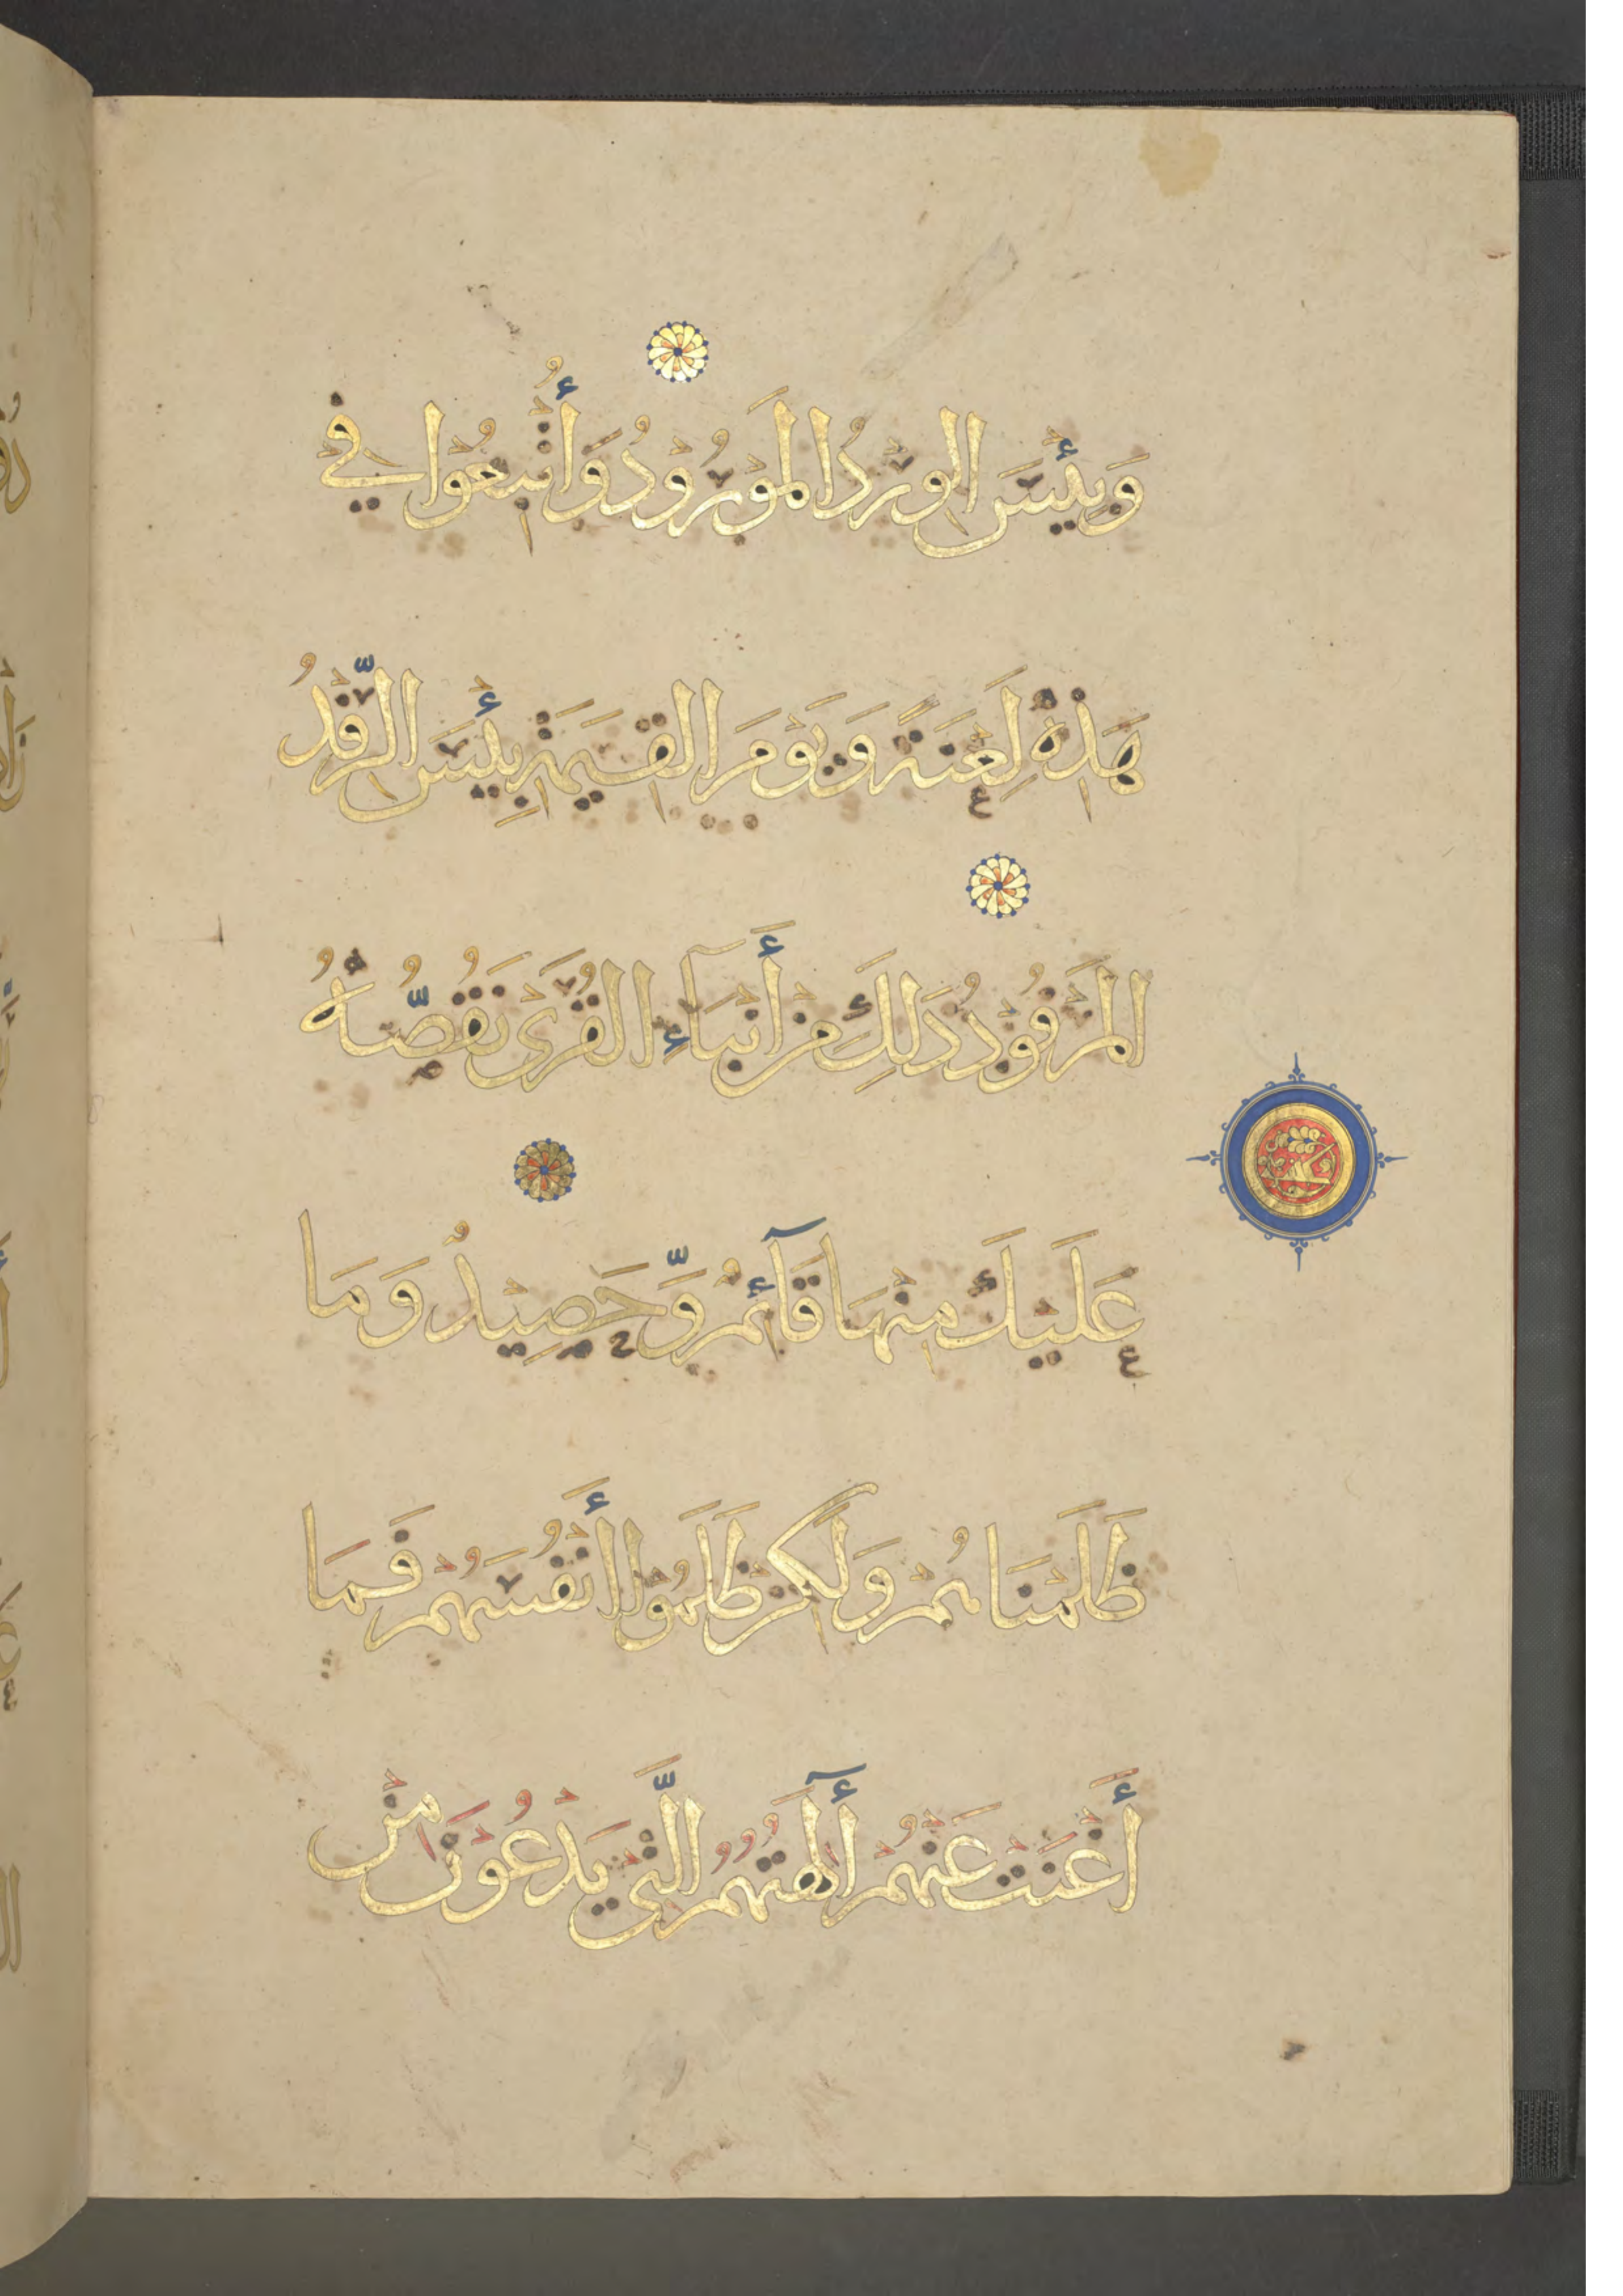 وَبِئْسَ الْوِرْدُ الْمَوْرُوْدُ وَأُتْبِعُوْا فِيْ
هٰذِهٖ لَعْنَةً وَيَوْمَ الْقِيٰمَةِ بِئْسَ الرِّفْدُ
الْمَرْفُوْدُ ذَلِكَ مِنْ أَنْبَآءِ الْقُرَى نَقُصُّهُ
عَلَيْكَ مِنْهَا قَآئِمٌ وَّحَصِيْدٌ وَمَا
ظَلَمْنَاهُمْ وَلَكِنْ ظَلَمُوْا أَنْفُسَهُمْ فَمَا
أَغْنَتْ عَنْهُمْ أٰلِهَتُهُمُ الَّتِيْ يَدْعُوْنَ مِنْ